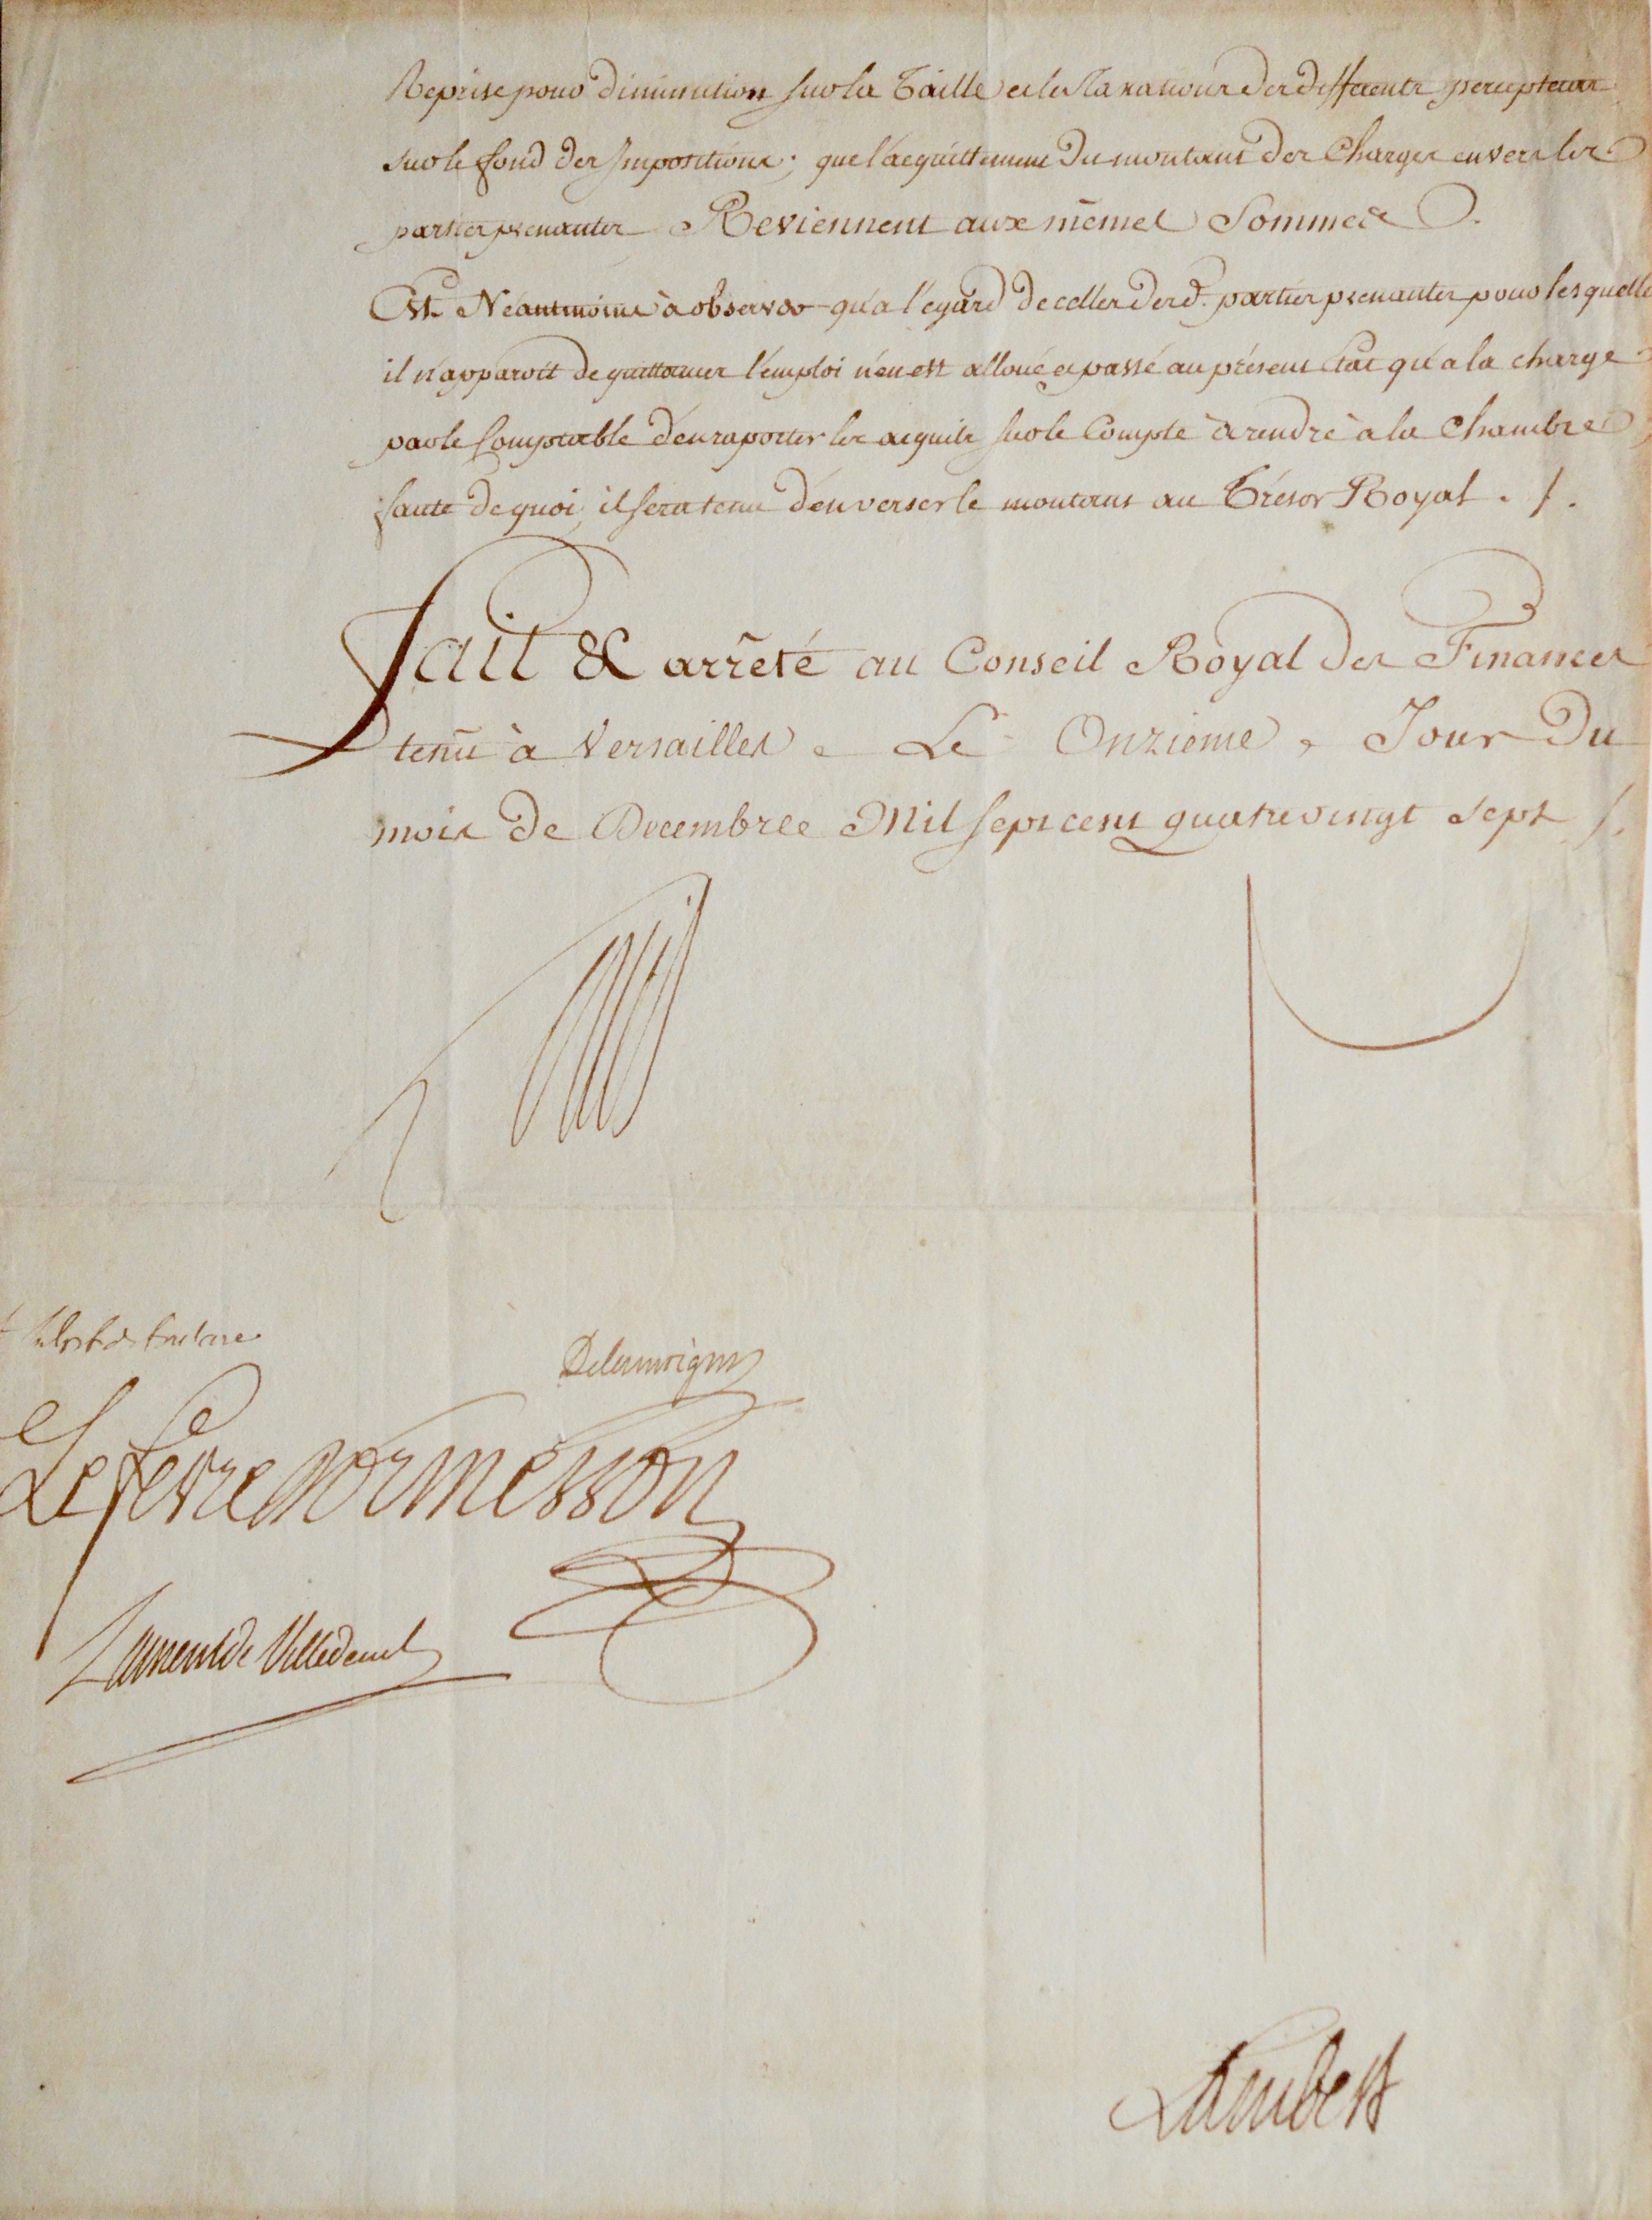 Reprise pour diminution sur la Taille et les Taxations des differents percepteurs
sur le fond des Impositions; que l'acquittement du montant des Charges envers les
parties prenantes Reviennent aux mêmes Sommes.
Est Néantmoins à observer qu'a l'egard de celles desd. parties prenantes pour lesquelles
il n'apparoit de quittances l'emploi n'en est alloué et passé au présent Etat qu'a la charge
par le Comptable d'en raporter les acquits sur le Compte à rendre à la Chambre
faute de quoi, il sera tenu d'en verser le montant au Trésor Royal ./.
Fait & arrêté au Conseil Royal des Finances
tenu à Versailles Le Onzième Jour Du
mois de Decembre Mil sept cent quatre vingt sept /.
Delamoignon
Lefevre Dormesson
Laurent de Villedeuil
Lambert